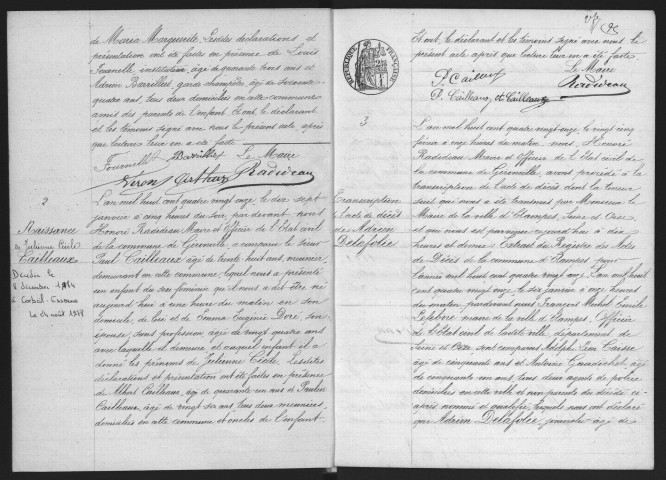 de Maria Marguerite. Lesdites déclarations et
présentation ont été faites en présence de Louis
Fournelle, instituteur, âgé de quarante trois ans et
Adrien Barville, garde champêtre, âgé de soixante
quatre ans, tous deux domiciliés en cette commune
amis des parents de l'enfant. Et ont, le déclarant
et les témoins signé avec nous le présent acte, après
que lecture leur en a été faite.
Fournelle Barville Le Maire
Véron Arthur Radideau
2
Naissance
de Julienne Cécile
Cailleaux
Décédée le
8 décembre 1964
à Corbeil-Essonnes
L'an mil huit cent quatre vingt onze, le dix sept
janvier à cinq heures du soir, par devant nous
Honoré Radideau Maire et Officier de l'Etat civil
de la commune de Gironville, a comparu le sieur
Paul Cailleaux âgé de trente huit ans, meunier,
demeurant en cette commune, lequel nous a présenté
un enfant du sexe féminin qu'il nous a dit être né
aujourd'hui à une heure du matin en son
domicile, de lui et de Emma Eugénie Doré, son
épouse, sans profession, âgée de vingt quatre ans
avec laquelle il demeure, et auquel enfant il a
donné les prénoms de Julienne Cécile. Lesdites
déclarations et présentation ont été faites en présence
de Albert Cailleaux, âgé de quarante un ans et Paulin
Cailleaux, âgé de vingt six ans tous deux meuniers,
domiciliés en cette commune et oncles de l'enfant.
Et ont, le déclarant et les témoins signé avec nous le
présent acte après que lecture leur en a été faite
Le Maire
P. Cailleaux Radideau
P. Cailleaux A. Cailleaux
RÉPUBLIQUE FRANÇAISE
3
Transcription
de l'acte de décès
de Adrien
Delafolie
L'an mil huit cent quatre vingt onze, le vingt cinq
février à neuf heures du matin, nous, Honoré
Radideau Maire et Officier de l'Etat civil de
la commune de Gironville, avons procédé à la
transcription de l'acte de décès dont la teneur
suit qui nous a été transmis par Monsieur le
Maire de la ville d'Etampes, Seine et Oise
et qui nous est parvenue aujourd'hui à dix
heures et demie: Extrait du Registre des Actes
de Décès de la commune d'Etampes pour
l'année mil huit cent quatre vingt onze. L'an mil huit
cent quatre vingt onze, le six janvier, à neuf heures
du matin, pardevant nous François Michel Emile
Lefebvre maire de la ville d'Etampes, Officier
de l'Etat civil de ladite ville, département de
Seine et Oise sont comparus Adolphe Léon Caisse
âgé de cinquante ans et Antoine Gaudichet, âgé
de cinquante un ans, tous deux agents de police
domiciliés en cette ville et non parents du décédé ci-
après nommé et qualifié; lesquels nous ont déclaré
que Adrien Delafolie, journalier âgé de